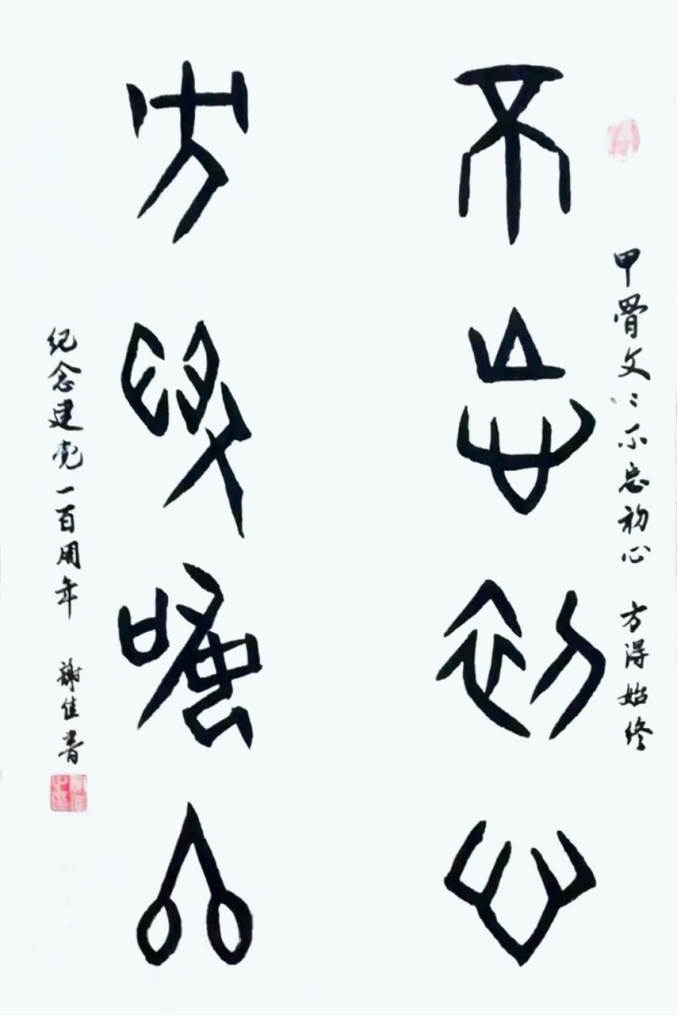 甲骨文：不忘初心 方得始终
不忘初心
方得始終
纪念建党一百周年 謝佳青